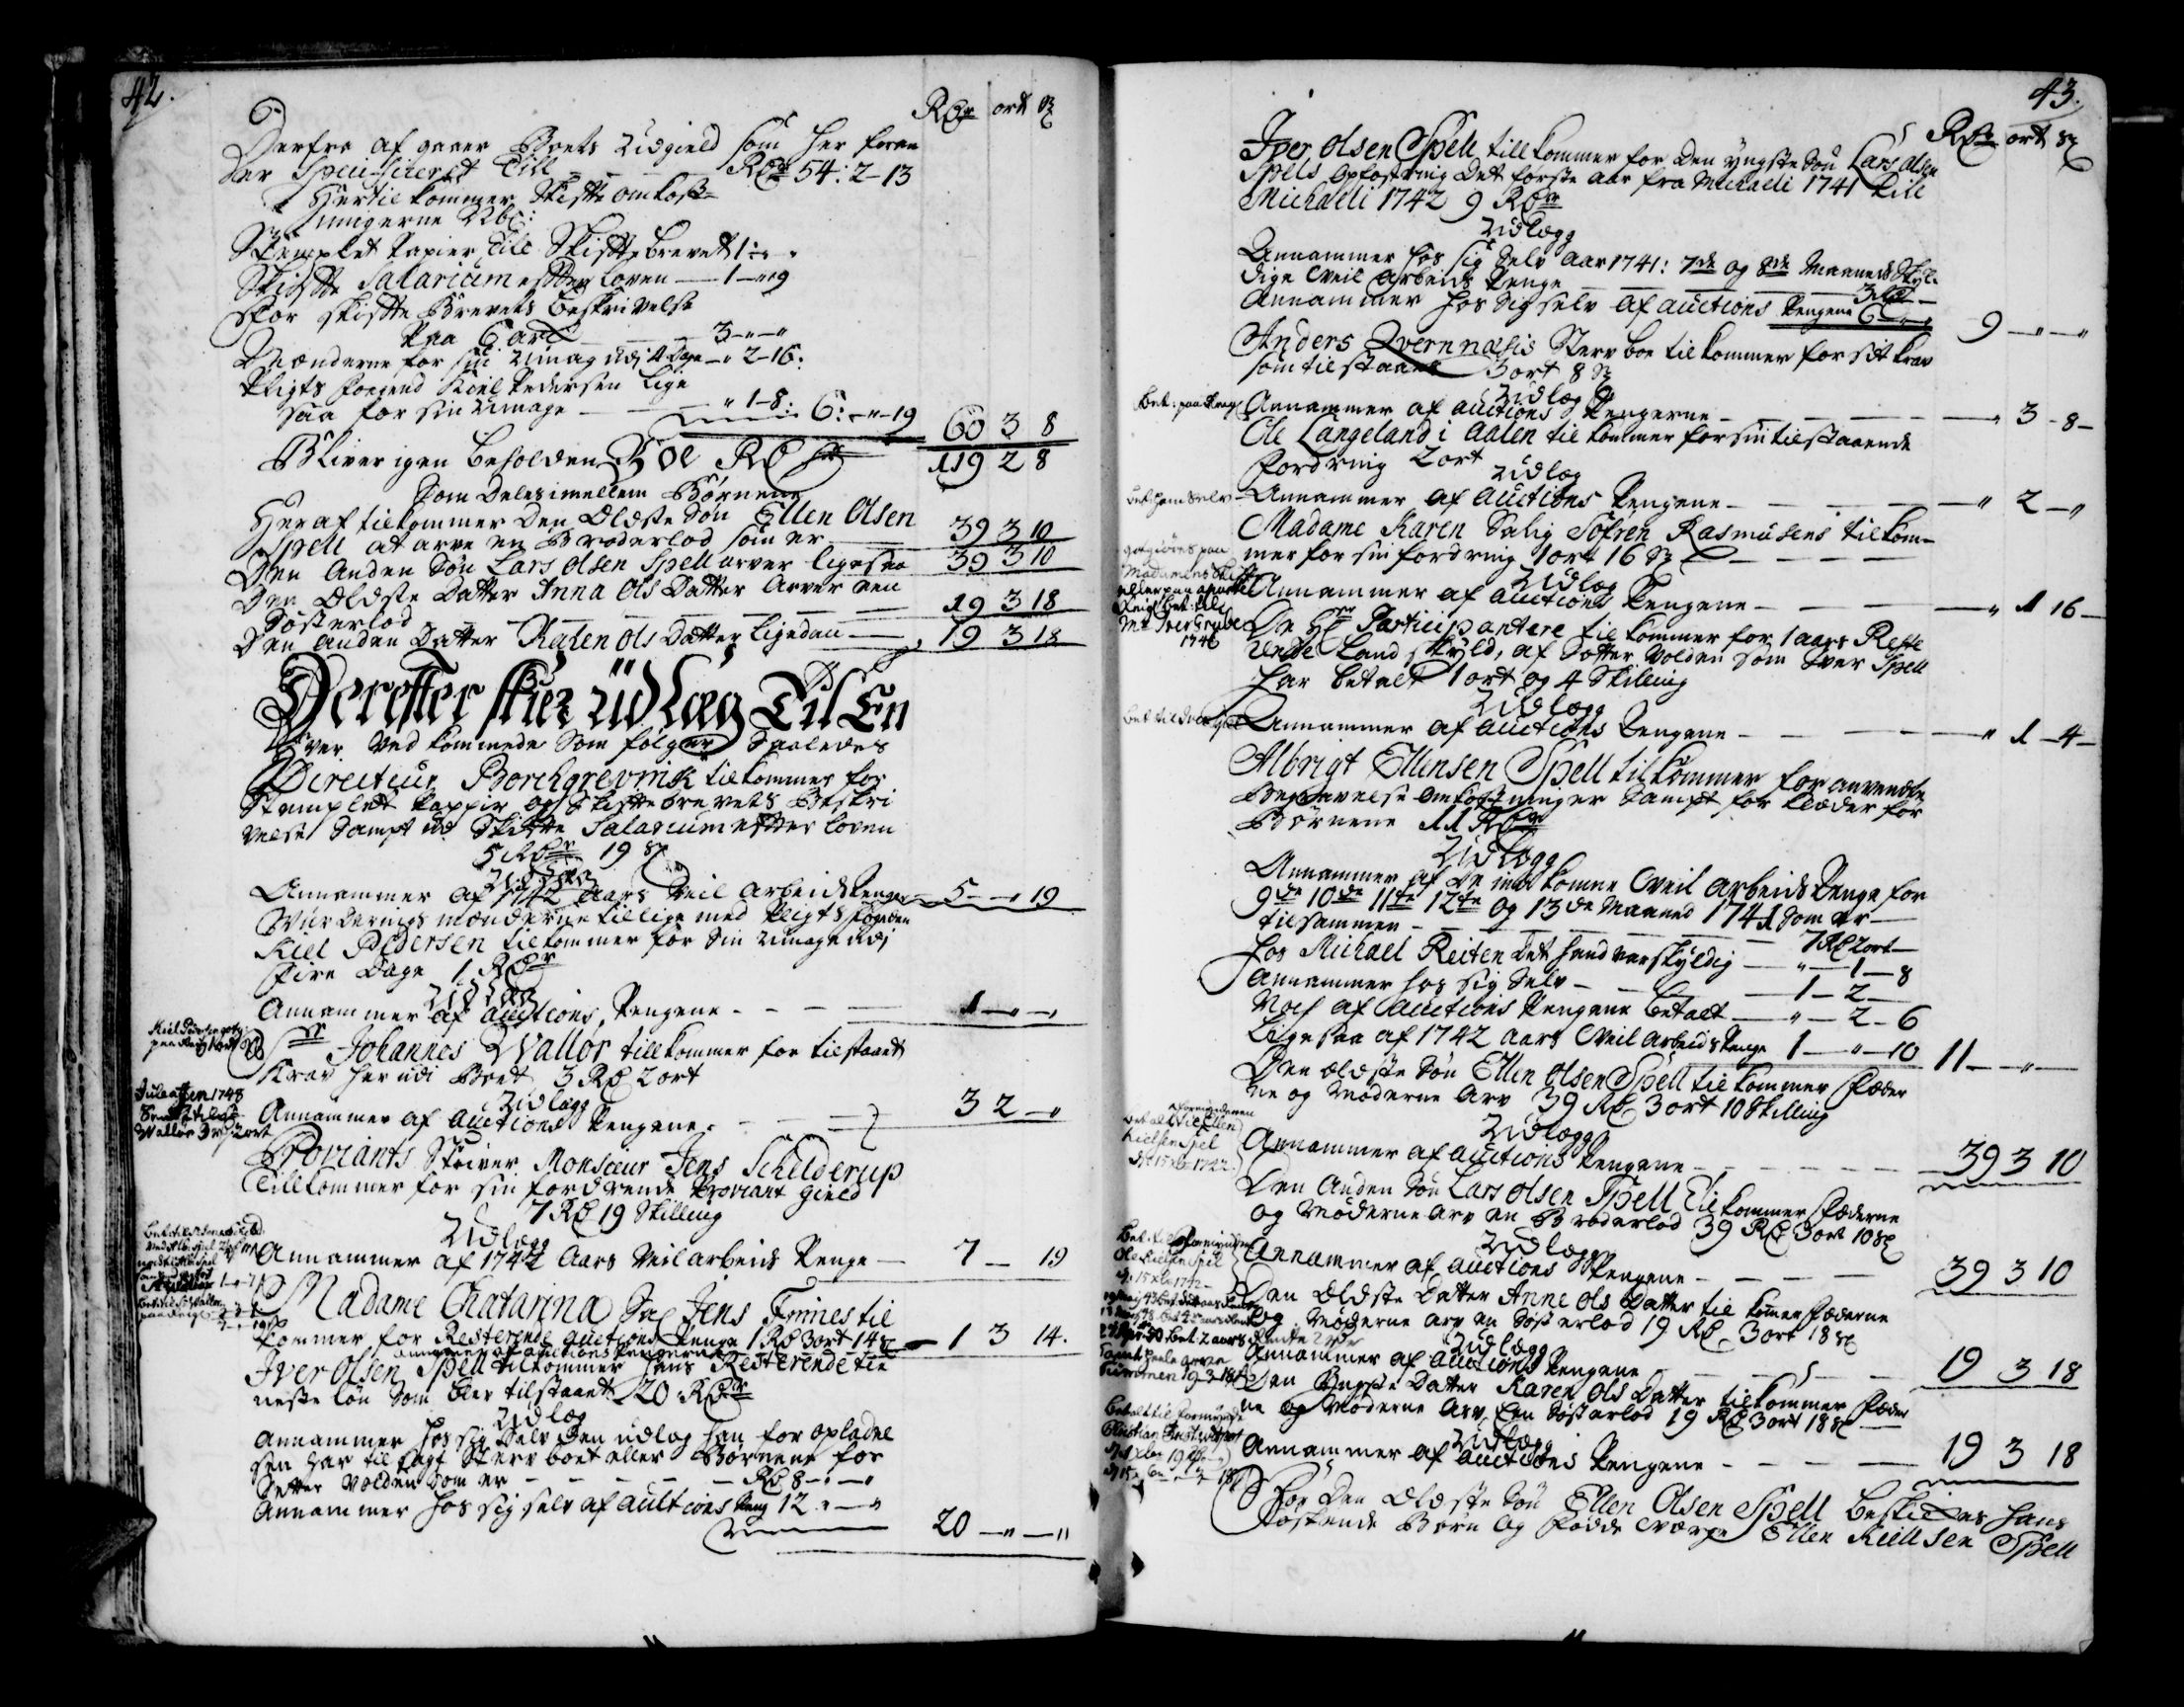 42.
Rdr ort s
Derfra af gaaer Boets Udgield som her foran
der Specificeret Till Rdr 54: 2-13
Hertil kommer Skifte omkost-
ningerne Nbl:
Stemplet Papier till Skiftebrevet 1-"-"
Skifte Salarium efter loven — 1-"-9
For skifte Brevets Beskrivelse
paa 6 ark — 3-"-"
Mænderne for sin umag udj 4 Dage - " 2-16:
Pligts foegend Kiel Pedersen lige
saa for sin umage — " 1-8: 6:-"-19
60 3 8
Bliver igen Beholden Boe Rd 119 2 8
Som deles imellem Børnene
Heraf tilkommer den Eldste Søn Ellen Olsen
Spell at arve en Broderlod som er — 39 3 10
Den Anden Søn Lars Olsen Spell arver ligesaa 39 3 10
Den Eldste Datter Anna Ols Datter Arver een
Søsterlod — 19 3 18
Den Anden Datter Karen Ols Datter ligedan — 19 3 18
Derefter skier udlæg Til En
hver Ved kommede Som følger Saaledes
Directeur Borchgrevink tilkommer for
Stemplet Pappir og Skiftebrevets Beskri
velse Sampt udj Skifte Salarium efter loven
5 Rdr 19 s
Udlæg
Annammer af 1742 Aars Veil arbeids Penge 5-"-19
Vurderings mænderne tillige med Pligts fogeden
Kiel Pedersen tilkommer for Sin Umage udj
Fire Dage 1 Rdr
Udlæg
Annammer af auctions Pengene — 1-"-"
Sr Johannes Wallor tilkommer for tilstaaet
Krav her udi Boet 3 Rd 2 ort
Udlæg
Annammer af auctions Pengene — 3 2-"
Proviants Skriver Monsieur Jens Schelderup
Tillkommer for sin fordrende Proviant gield
7 Rd 19 Skilling
Udlæg
Annammer af 1742 Aars Veilarbeids Penge — 7 — 19
Madame Chatarina Sal Jens Finnes til
kommer for Resterende auctions Penge 1 Rd 3 ort 14 s — 1 3 14.
annammer af auctions Pengerne
Iver Olsen Spell tilkommer hans Resterende tie
neste løn som her tilstaaet 20 Rdr
Udlæg
Annammer hos sig Selv Den udlæg han for opladel
sen har til sagt Sterv boet eller Børnene for
Sætter Volden som er — Rd 8-"-"
Annammer hos sig selv af auctions Peng 12-"-"
20-"-"
43.
Rdr ort s
Iver Olsen Spell tillkommer for den yngste Søn Lars Olsen
Spells opfostring Det første aar fra Michaeli 1741 till
Michaeli 1742 9 Rdr
Udlægg
Annammer hos sig Selv aar 1741: 7de og 8de Maaneds skyl-
dige Veil arbeids Penge — 3 Rd —
Annammer hos Sig selv af auctions Pengene 6-"-" 9-"-"
Anders Qvernnæsis Sterv boe tilkommer for sit krav
som tilstaaet 3 ort 8 s
Udlæg
Annammer af auctions Pengerne — " 3-8-
Ole Langeland i Aalen tilkommer for sin tilstaaende
Fordring 2 ort
Udlæg
Annammer af auctions Pengene — " 2-"
Madame Karen Salig Søfren Rasmusens tilkom-
mer for sin fordring 1 ort 16 s
Udlæg
Annammer af auctions Pengene — " 1 16-
De Hrr Participantere tilkommer for 1 aars Reste
rende Land skyld, af Sætter Volden som Iver Spell
har betalt 1 ort og 4 Skilling
Udlægg
Annammer af auctions Pengene — " 1-4-
Albrigt Ellensen Spell tilkommer for anvendte
Begravelse omkostninger Sampt for klæder for
Børnene 11 Rdr
Udlægg
Annammer af de ind komne Veil arbeids Penge for
9de 10de 11te 12te og 13de Maaned 1741 som er —
tilsammen — 7 Rd 2 ort —
Hos Michael Reiten det hand var skyldig — " — 1 — 8
Annammer hos sig Selv — 1-2-
Noch af auctions Pengene Betalt — " — 2-6
Ligesaa af 1742 Aars Veil arbeids Penge 1-"-10 11-"-
Den eldste Søn Ellen Olsen Spell tilkommer Fæder
ne og Møderne Arv 39 Rd 3 ort 10 Skilling
Udlægg
Annammer af auctions Pengene — 39 3 10
Den Anden Søn Lars Olsen Spell tilkommer Fæderne
og Møderne Arv en Broderlod 39 Rd 3 ort 10 s
Udlæg
Annammer af auctions Pengene — 39 3 10
Den Eldste Datter Anne Ols Datter til kommer Fæderne
og Møderne Arv en Søsterlod 19 Rd 3 ort 18 s
Udlægg
Annammer af auctions Pengene — 19 3 18
Den Yngste Datter Karen Ols Datter tilkommer Fæder
ne og Møderne Arv Een Søsterlod 19 Rd 3 ort 18 s
Udlæg
Annammer af auctions Pengene — 19 3 18
For Den Eldste Søn Ellen Olsen Spell beskickes hans
Søskende Børn og Fødde Værge Ellen Kiellsen Spell